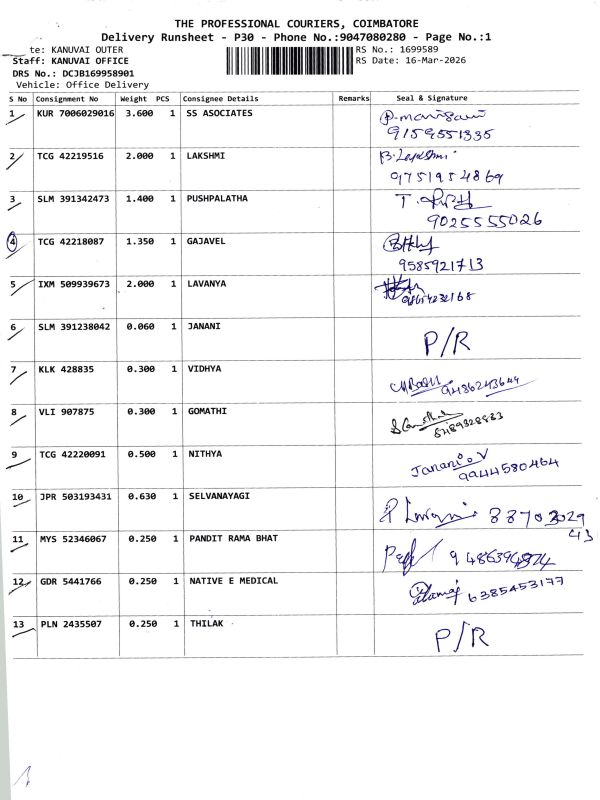 THE PROFESSIONAL COURIERS, COIMBATORE
Delivery Runsheet - P30 - Phone No.:9047080280 - Page No.:1
te: KANUVAI OUTER RS No.: 1699589
Staff: KANUVAI OFFICE RS Date: 16-Mar-2026
DRS No.: DCJB169958901
Vehicle: Office Delivery
S No Consignment No Weight PCS Consignee Details Remarks Seal & Signature
1 KUR 7006029016 3.600 1 SS ASOCIATES
9159551335
2 TCG 42219516 2.000 1 LAKSHMI
9751954869
3 SLM 391342473 1.400 1 PUSHPALATHA
9025555026
4 TCG 42218087 1.350 1 GAJAVEL
9585921713
5 IXM 509939673 2.000 1 LAVANYA
6 SLM 391238042 0.060 1 JANANI
P/R
7 KLK 428835 0.300 1 VIDHYA
9486243644
8 VLI 907875 0.300 1 GOMATHI
9 TCG 42220091 0.500 1 NITHYA
Janani . V
9944580464
10 JPR 503193431 0.630 1 SELVANAYAGI
88703029
43
11 MYS 52346067 0.250 1 PANDIT RAMA BHAT
12 GDR 5441766 0.250 1 NATIVE E MEDICAL
6385453177
13 PLN 2435507 0.250 1 THILAK
P/R